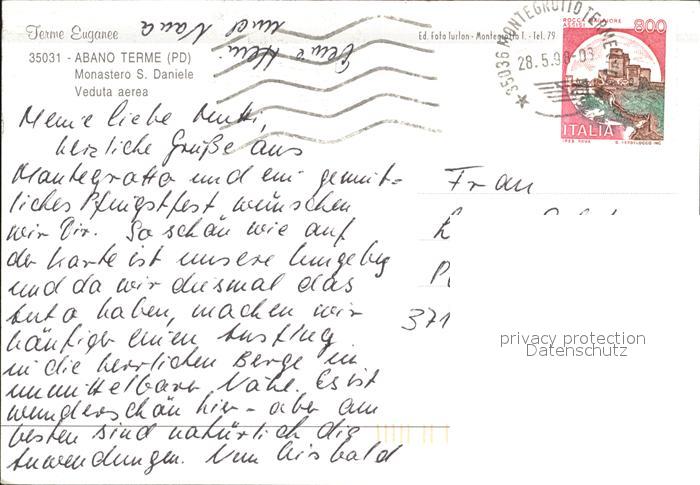 Terme Euganee
35031 - ABANO TERME (PD)
Monastero S. Daniele
Veduta aerea
Ed. Foto Turlon - Montegrotto T. - Tel. 79
35036 MONTEGROTTO TERME
28.5.90-08
ROCCA MAGGIORE
ASSISI
800
ITALIA
Meine liebe Mutti,
herzliche Grüße aus
Montegrotto und ein gemüt-
liches Pfingstfest wünschen
wir Dir. So schön wie auf
der Karte ist unsere Umgebung
und da wir diesmal das
Auto haben, machen wir
häufiger einen Ausflug
in die herrlichen Berge in
unmittelbarer Nähe. Es ist
wunderschön hier - aber am
besten sind natürlich die
Anwendungen. Nun bis bald
Deine Heni
und Nana
Frau
371
privacy protection
Datenschutz